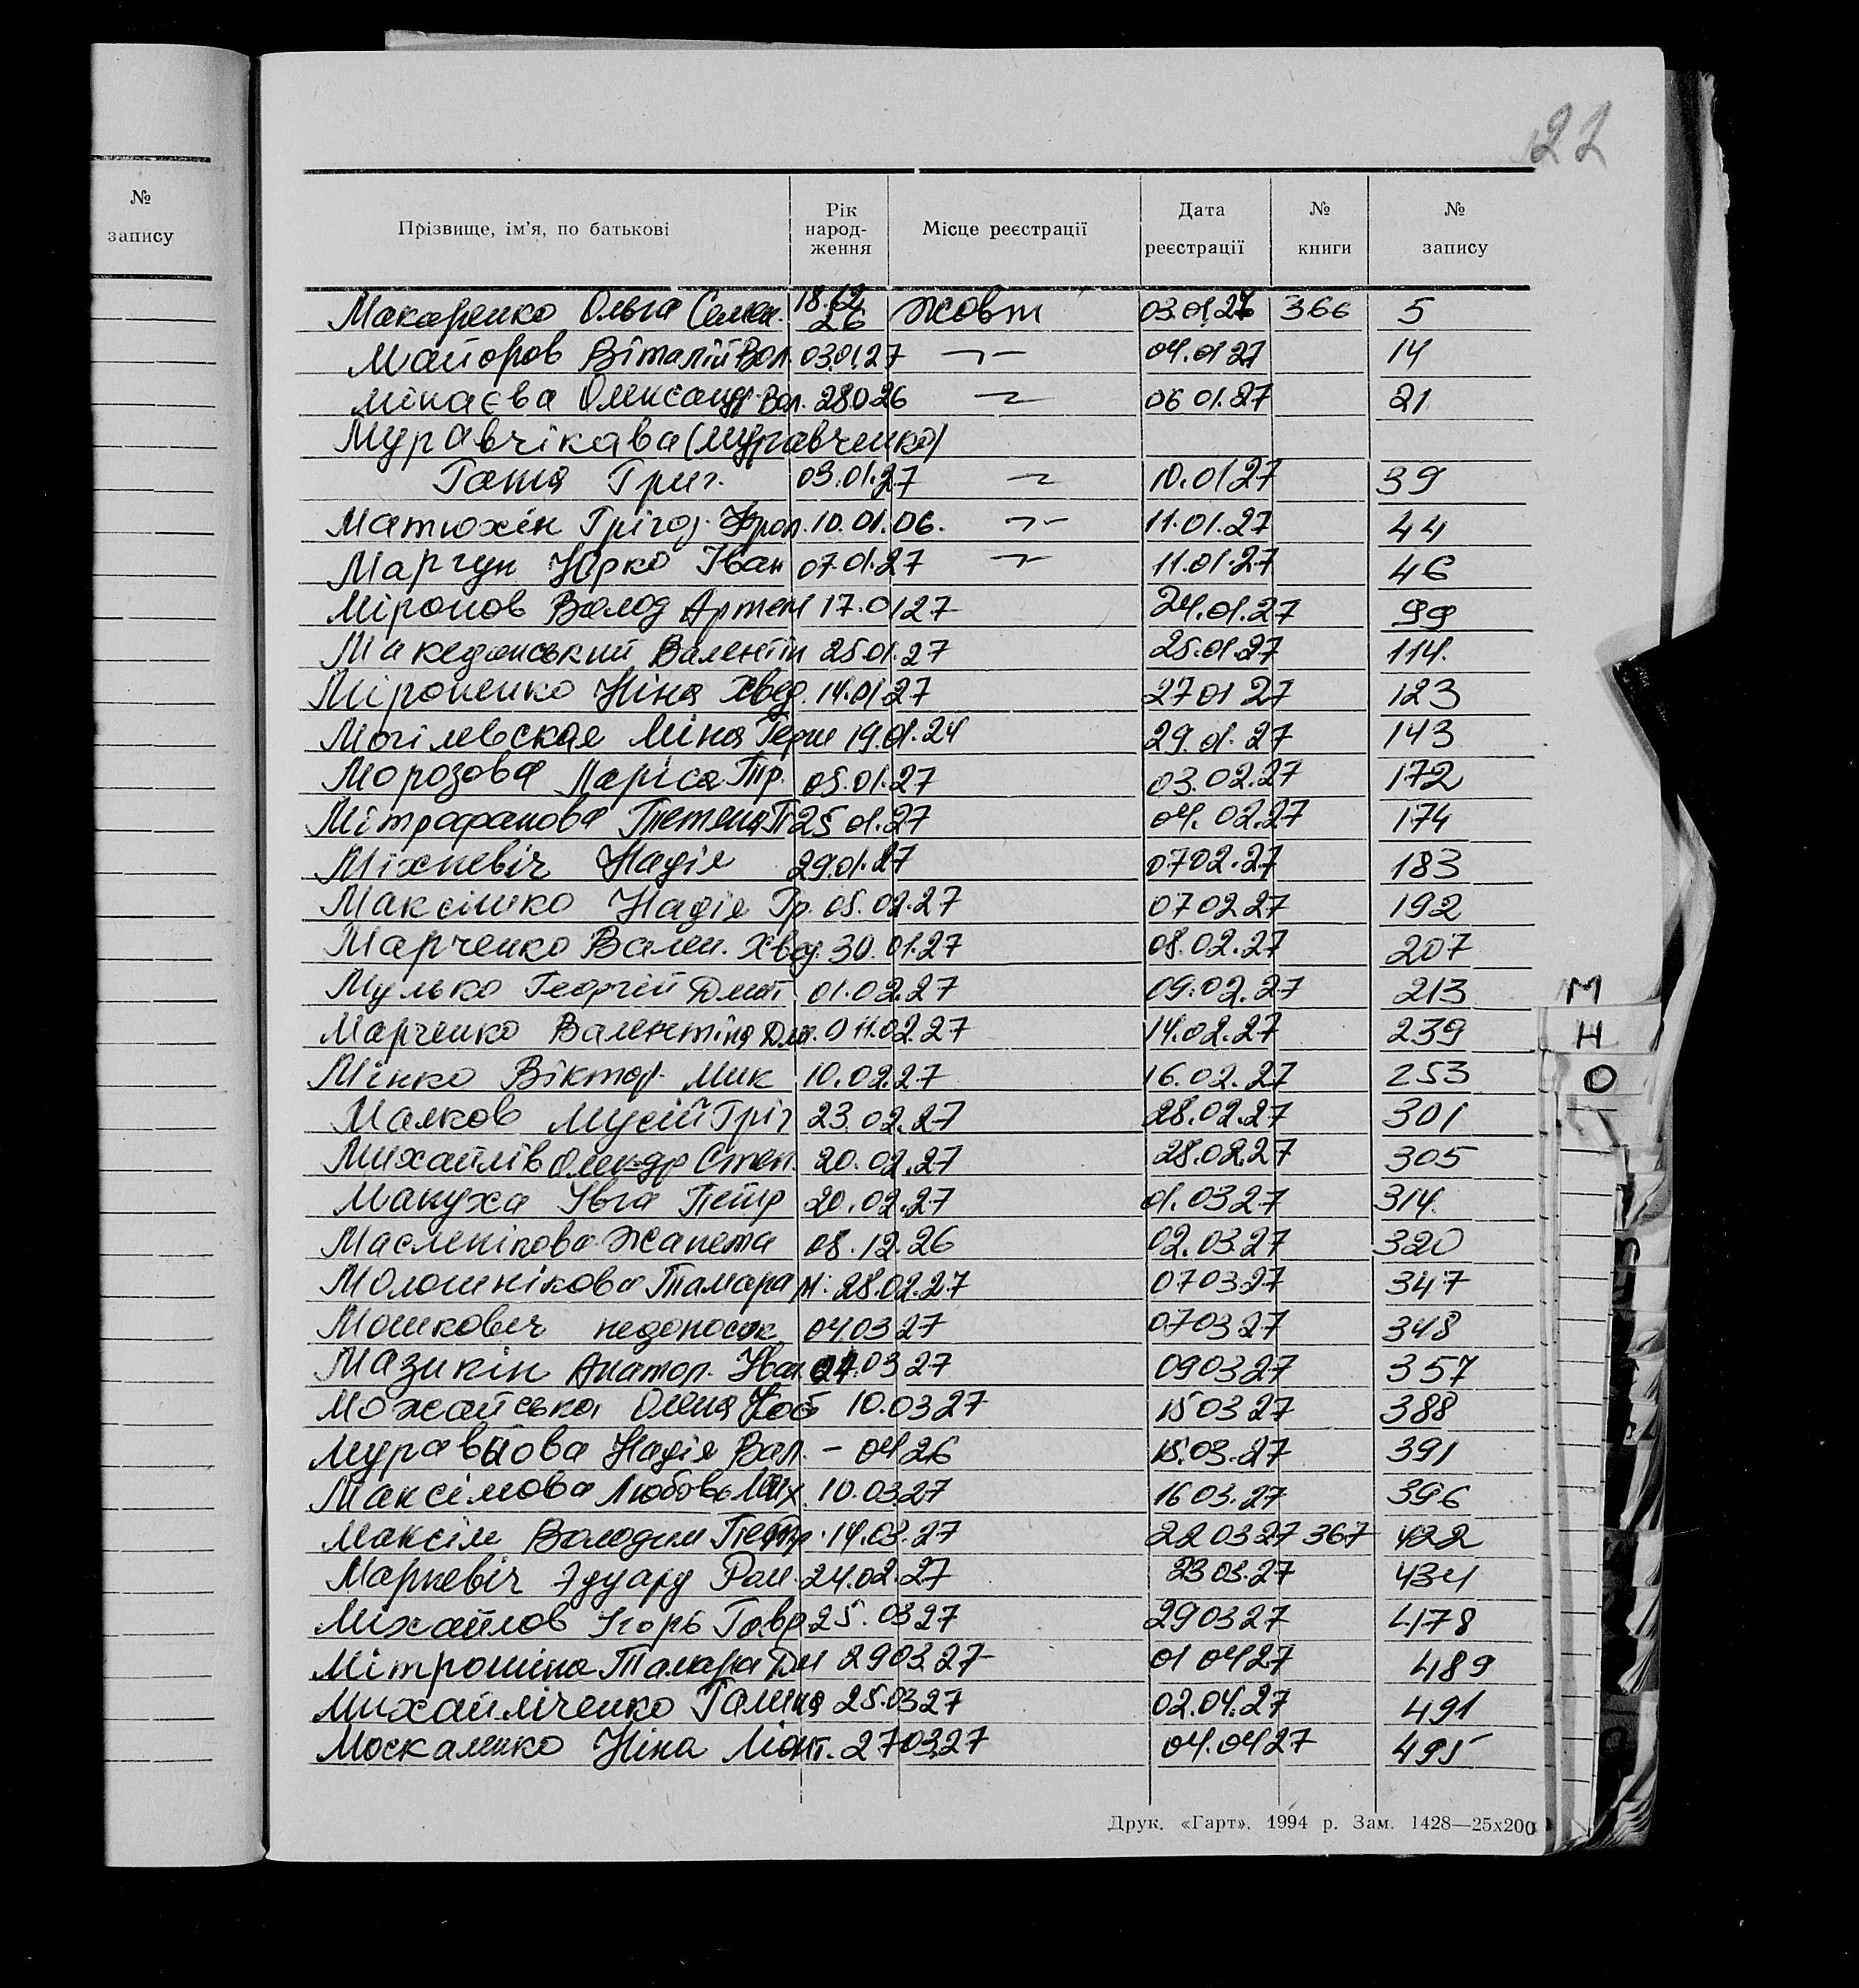 22
№
запису
Прізвище, ім'я, по батькові
Рік
народ-
ження
Місце реєстрації
Дата
реєстрації
№
книги
№
запису
Макаренко Ольга Семен. 18.12.26 Жовт 03.01.27 366 5
Майоров Віталій Вол. 03.01.27 —"— 04.01.27 14
Мінаєва Олександ. Вол. 28.0.26 —"— 06.01.27 21
Муравчікава (Муравченко)
Ганя Григ. 03.01.27 —"— 10.01.27 39
Матюхін Грігор. Фрол. 10.01.06. —"— 11.01.27 44
Маргун Юрко Іван 07.01.27 —"— 11.01.27 46
Міронов Волод Артем 17.01.27 24.01.27 99
Македонський Валентін 25.01.27 25.01.27 114.
Міроненко Ніна Хвед. 14.01.27 27 01 27 123
Могілевская Міня Герш 19.01.24 29.01.27 143
Морозова Ларіса Тр. 05.01.27 03.02.27 172
Мітрафанова Тетяна П 25 01.27 04.02.27 174
Міхневіч Надія 29.01.27 07 02.27 183
Максімко Надія Гр. 05.02.27 07 02 27 192
Марченко Вален. Хвед. 30.01.27 08.02.27 207
Мулько Георгій Дмит 01.02.27 09.02.27 213
Марченко Валентіна Дм. 0 11.02.27 14.02.27 239
Мінко Віктор. Мик 10.02.27 16.02.27 253
Малков Мусій Гріг 23.02.27 28.02.27 301
Михайлів Олекдр Степ. 20.02.27 28.02.27 305
Макуха Івга Петр 20.02.27 01.03 27 314.
Масленікова Жанета 08.12.26 02.03.27 320
Молошнікова Тамара М. 28.02.27 07 03.27 347
Мошкович недоносок 04.03 27 07 03 27 348
Мазикін Анатол. Іван 04.03 27 09 03 27 357
Можайська Олена 10.03 27 15 03 27 388
Муравйова Надія Вал. – 04 26 15.03.27 391
Максімова Любовь Мих. 10.03 27 16 03.27 396
Максім Володим Петр. 14.03.27 22 03 27 367 422
Маркевіч Эдуард Ром. 24.02.27 23 03.27 434
Міхайлов Ігорь Гавр. 25.03 27 29 03 27 478
Мітрошіна Тамара Дм 29 03.27 01 04 27 489
Михайліченко Галина 25.03 27 02.04.27 491
Москаленко Ніна 27 03.27 04.04 27 495
М
Н
О
Друк. «Гарт». 1994 р. Зам. 1428—25х200
№
запису